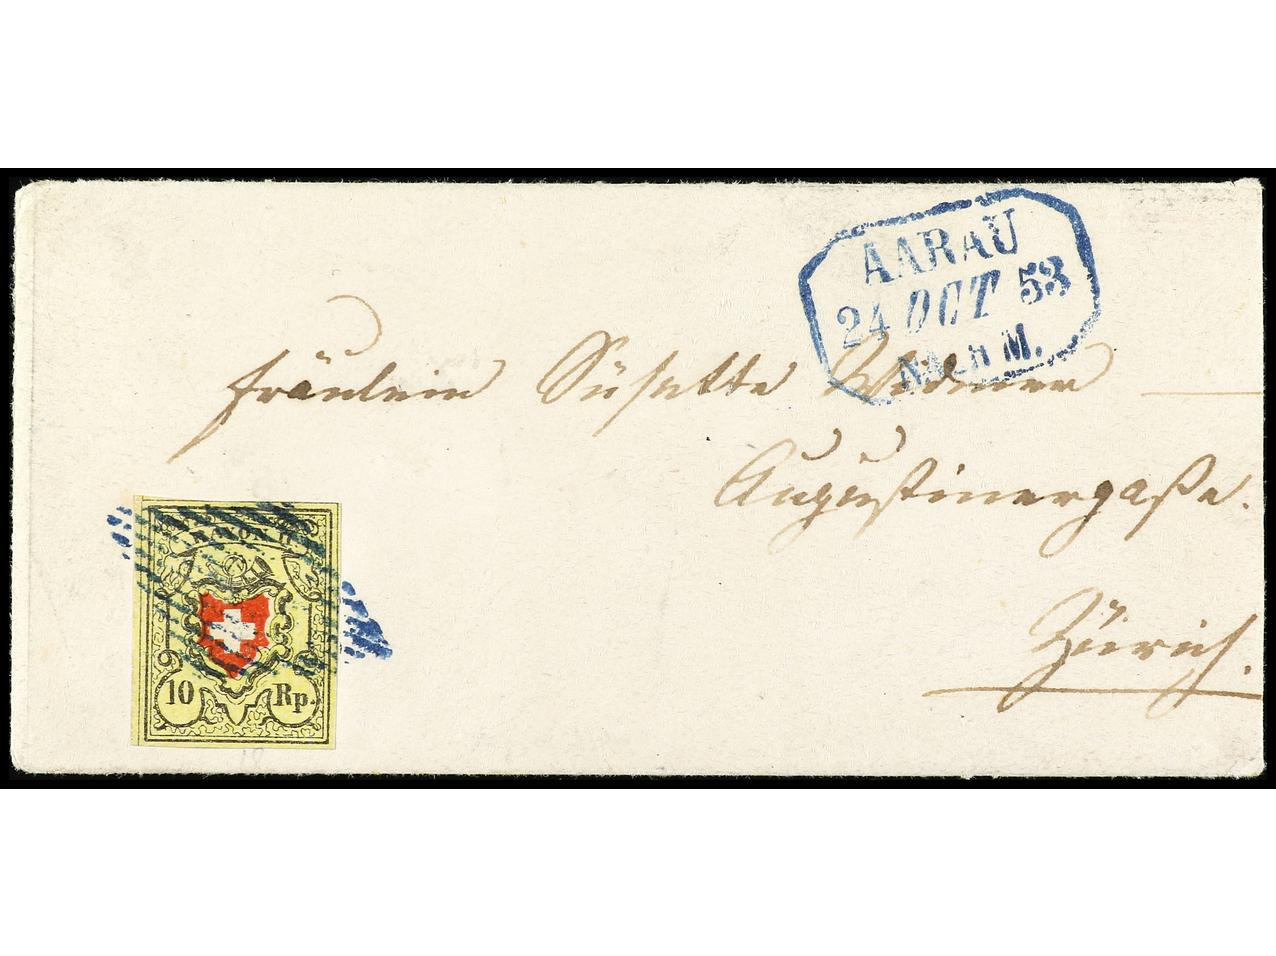 AARAU
24 OCT 53
NACH M.
Fräulein Süsette Widmer
Augustinergaße.
Zürich.
RAYON II
10 Rp.